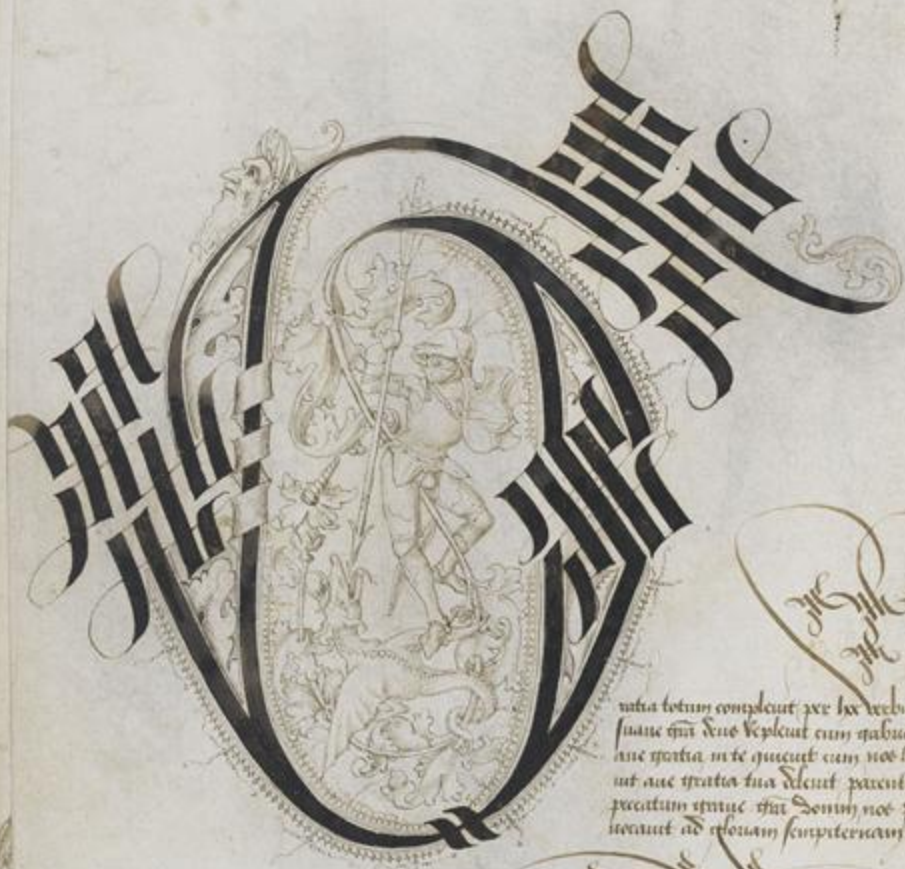 ratia totum compleuit per hec verb
suaue deus repleuit cum gabri
aue gratia in te quieuit cum nos
uit aue gratia tua deleuit parent
peccatum graue donum nos
uocauit ad gloriam sempiternam